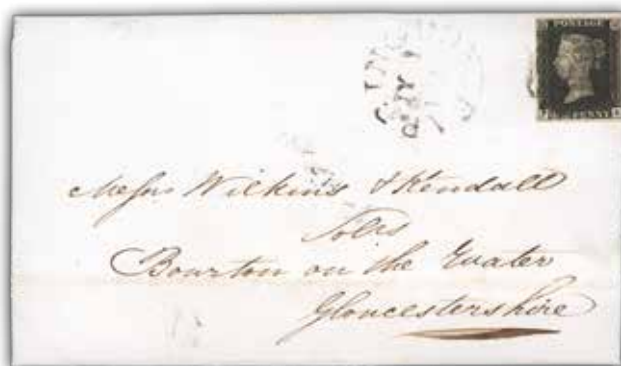 POSTAGE
PENNY
Messrs Wilkins & Kendall
Solrs
Bourton on the Water
Gloucestershire